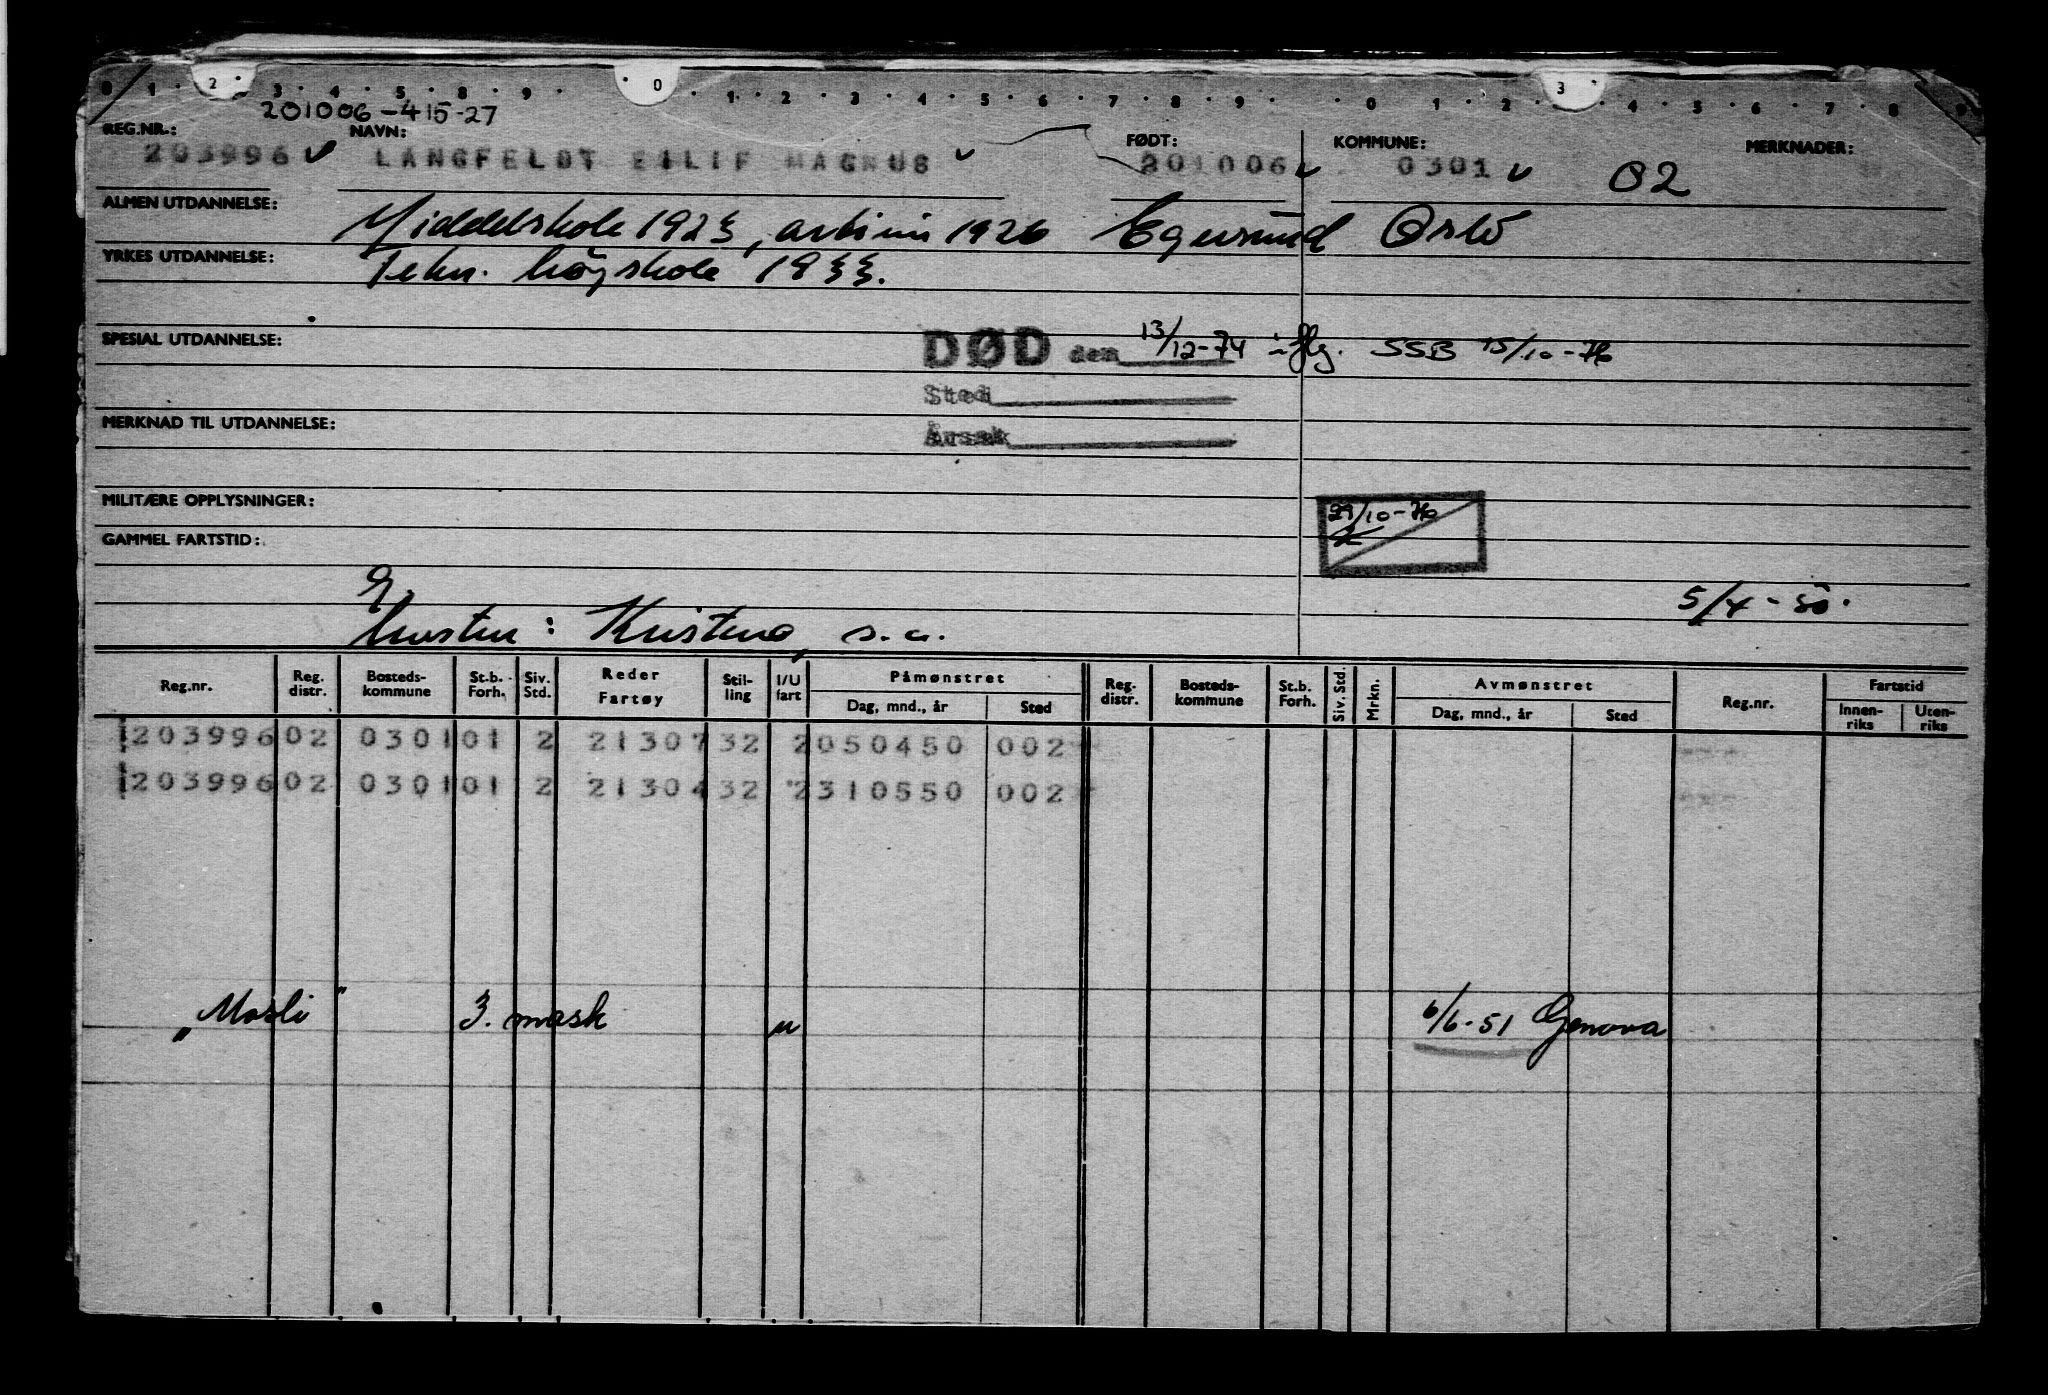 0 1 2 3 4 5 8 9 0 1 2 3 4 5 6 7 8 9 0 1 2 3 4 5 6 7 8 9
201006-415-27
REG.NR.: NAVN: FØDT: KOMMUNE: MERKNADER:
203996 LANGFELDT EILIF MAGNUS 201006 0301 02
ALMEN UTDANNELSE: Middelskole 1923, artium 1926 Egersund Oslo
YRKES UTDANNELSE: Tekn. högskole 1933.
SPESIAL UTDANNELSE: DØD den 13/12-74 iflg. SSB 15/10-76
Sted
MERKNAD TIL UTDANNELSE: Årsak
MILITÆRE OPPLYSNINGER: 29/10-76
GAMMEL FARTSTID:
5/4-50.
Hustru: Kristine, s.a.
Reg.nr. Reg. distr. Bosteds-kommune St.b. Forh. Siv. Std. Reder Fartøy Stil-ling I/U fart Påmønstret Dag, mnd., år Sted Reg. distr. Bosteds-kommune St.b. Forh. Siv. Std. Mrkn. Avmønstret Dag, mnd., år Sted Reg.nr. Fartstid Innen-riks Uten-riks
1203996 02 0301 01 2 21307 32 2 050450 002
1203996 02 0301 01 2 21304 32 2 310550 002
"Mosli" 3. mask u 6/6-51 Genova